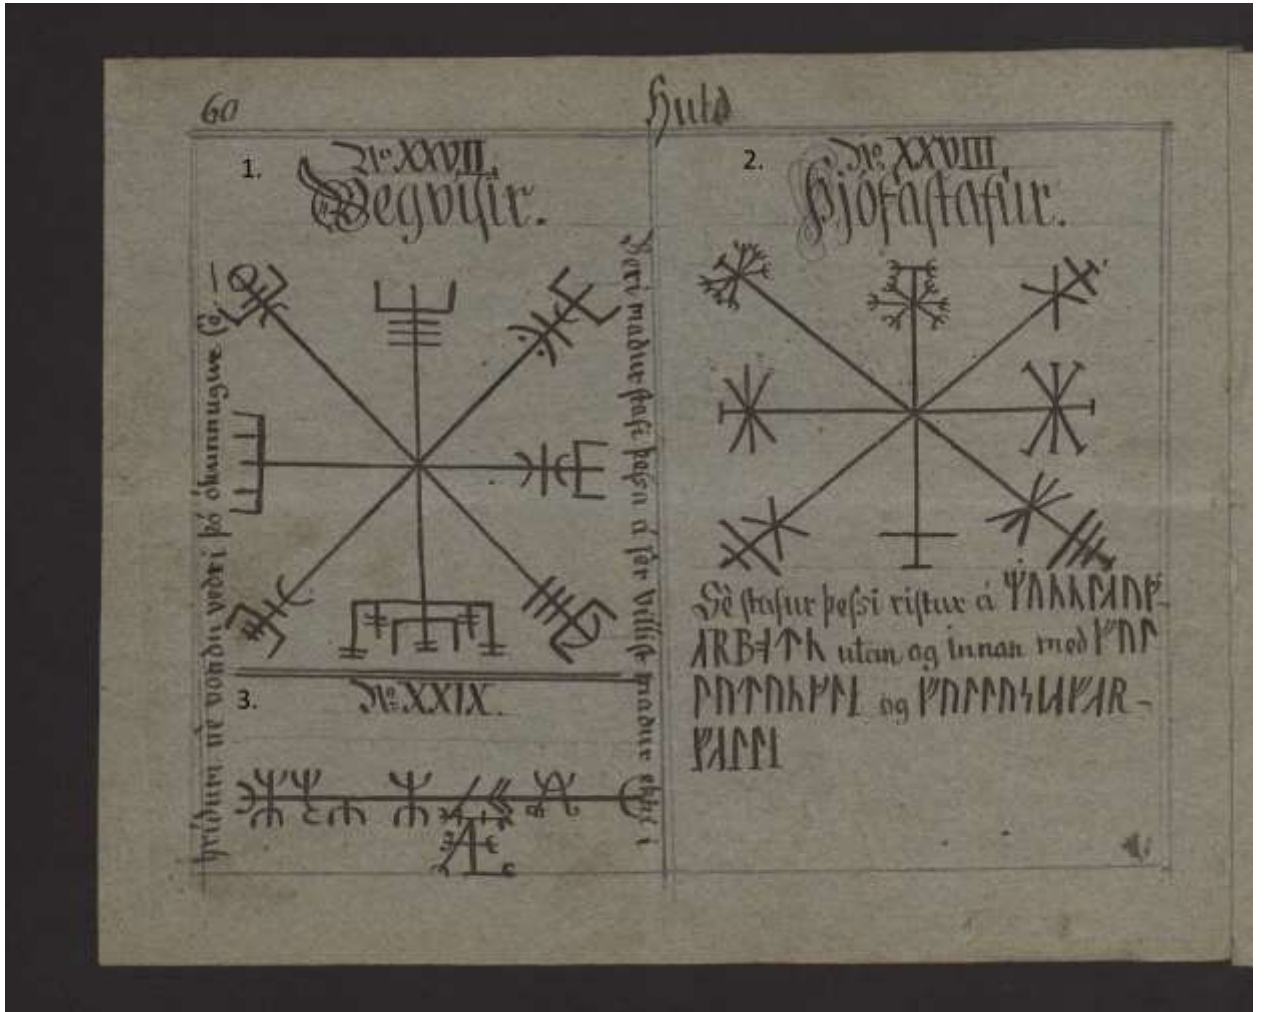 60
Huld
1.
No. XXVII.
Vegvísir.
Beri madur stafi þessa á sér villist madur ekki í
hrídum né vondu vedri þó ókunnugur sé. –
2.
No. XXVIII.
Þjófastafur.
Sé stafur þessi ristur á
utan og innan med
og
3.
No. XXIX.